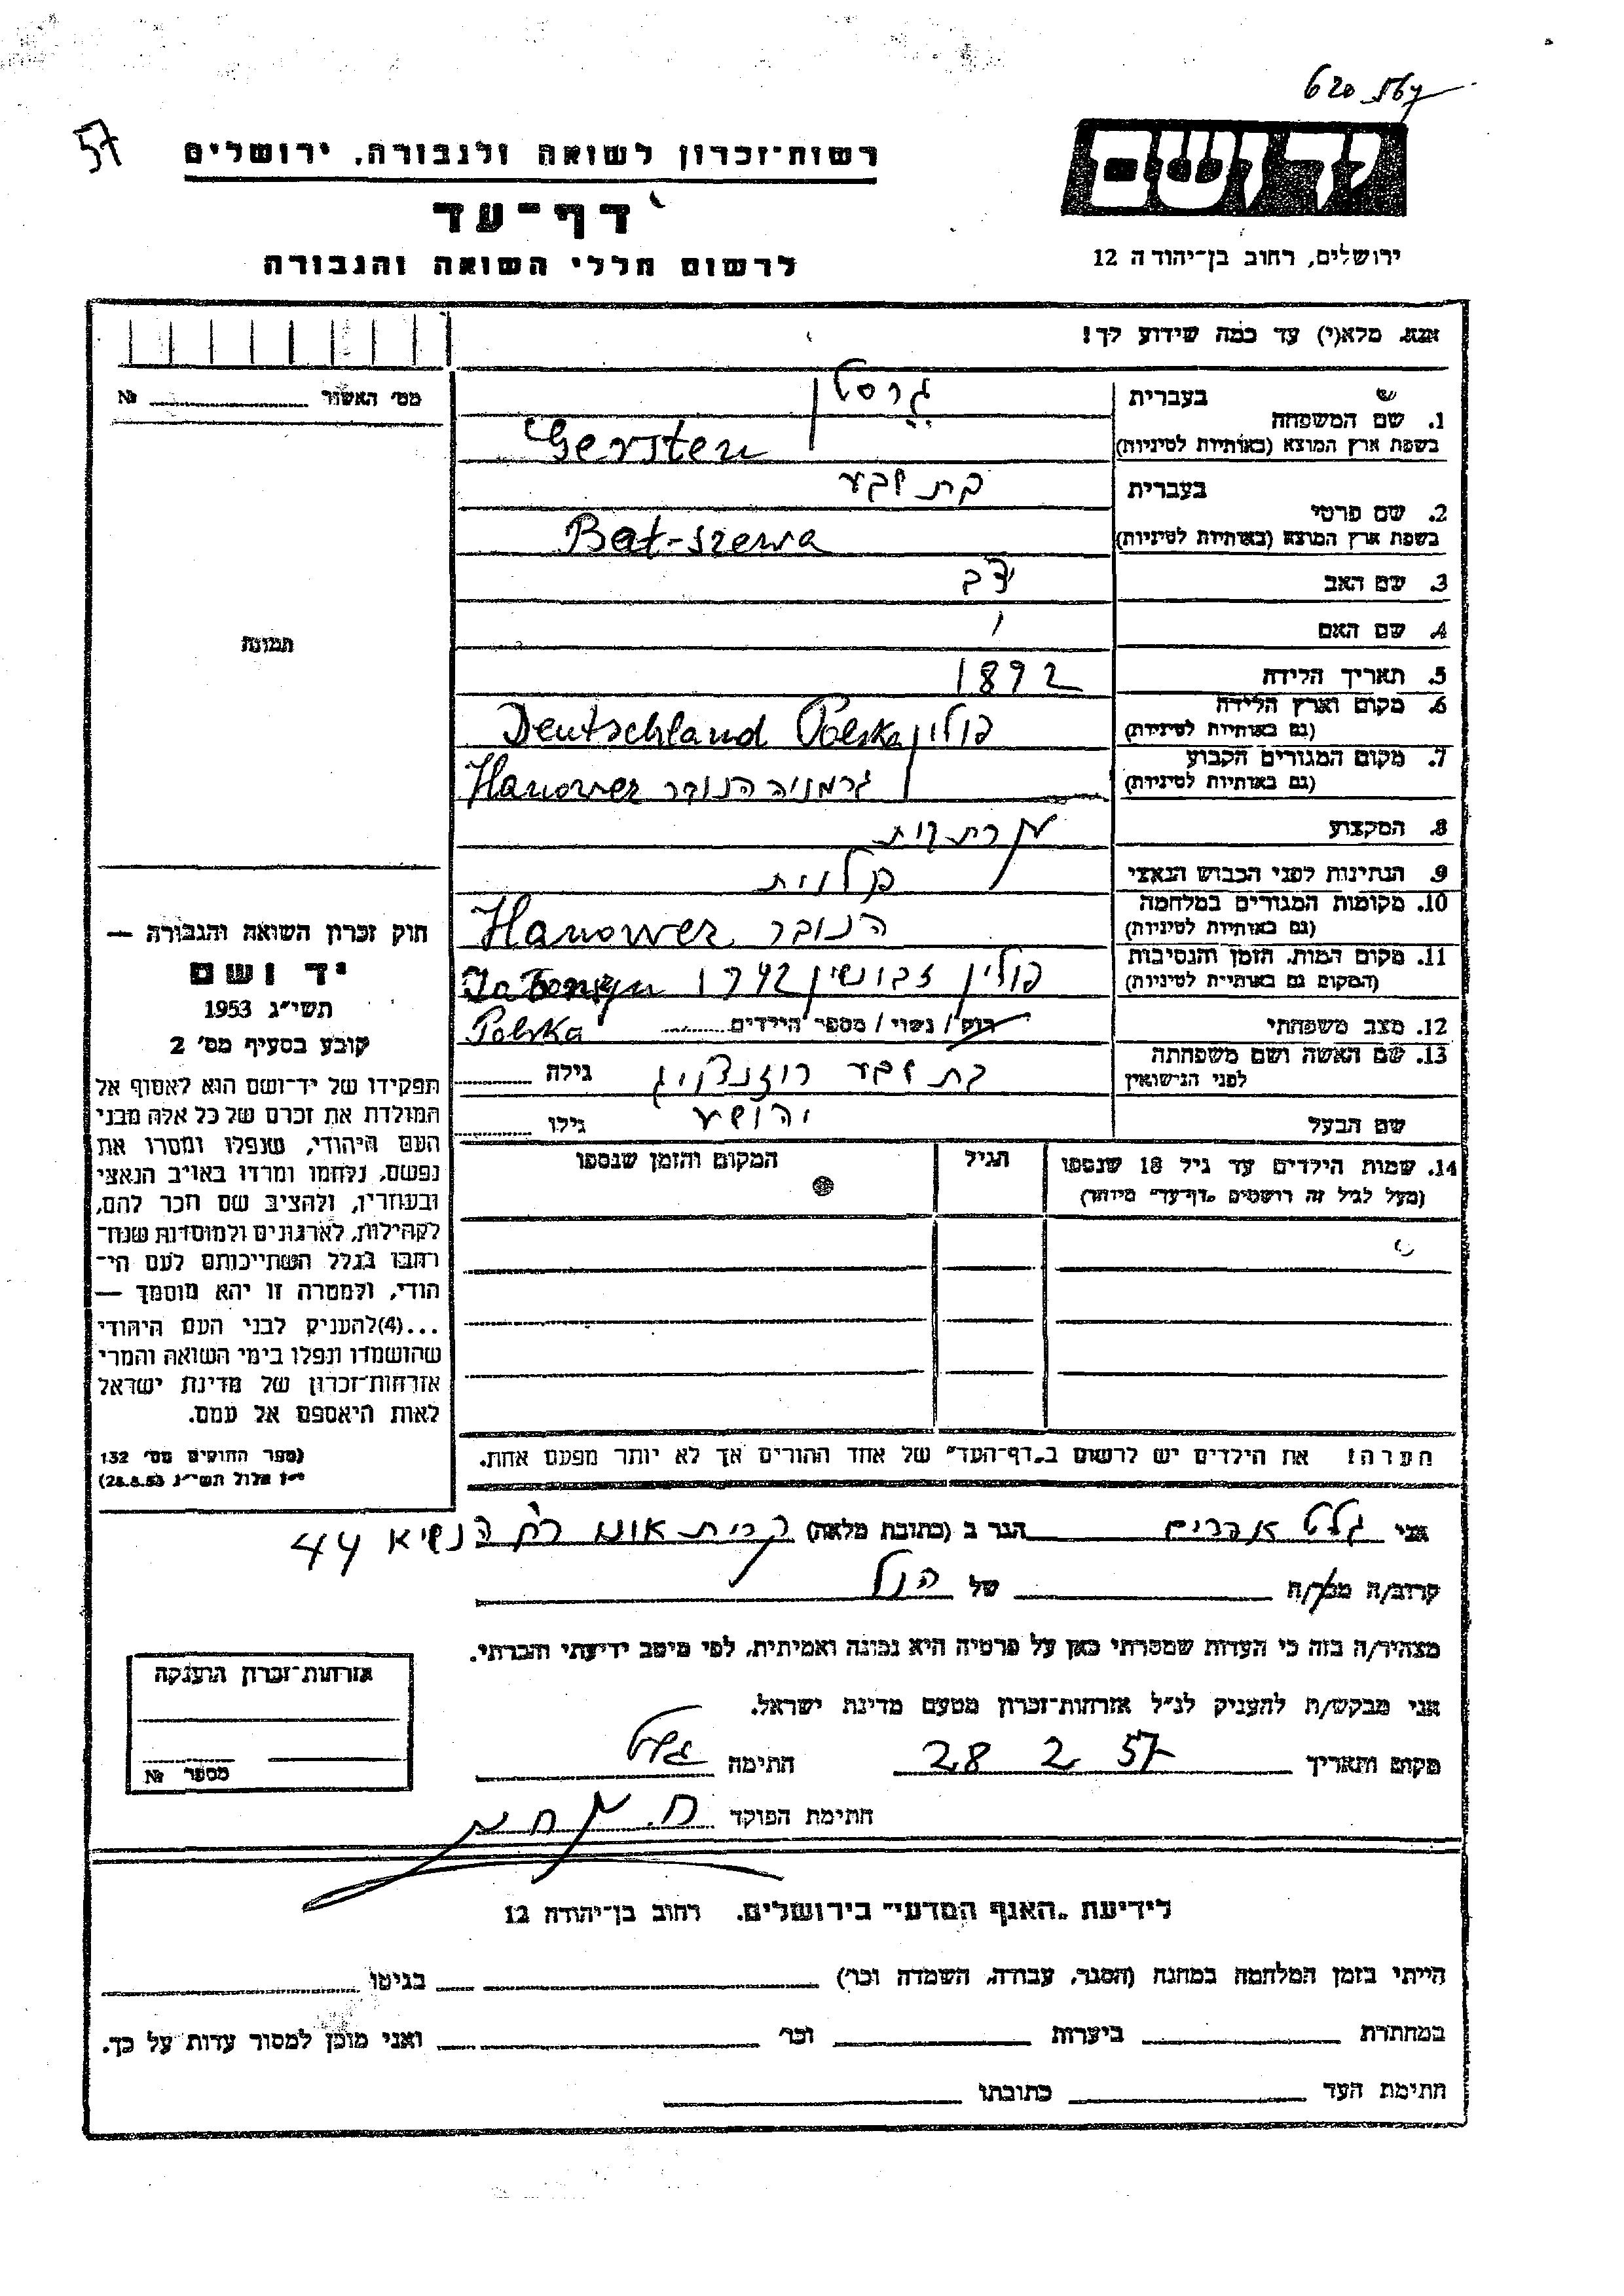 620 567
57
רשות־זכרון לשואה ולגבורה, ירושלים
יד ושם
דף־עד
לרשום חללי השואה והגבורה
ירושלים, רחוב בן־יהודה 12
אנא, מלא(י) עד כמה שידוע לך!
מס׳ האשור № 
1. שם המשפחה
בעברית גרסטן
בשפת ארץ המוצא (באותיות לטיניות) Gersten
2. שם פרטי
בעברית בת שבע
בשפת ארץ המוצא (באותיות לטיניות) Bat-szewa
3. שם האב
4. שם האם
5. תאריך הלידה 1892
6. מקום וארץ הלידה פולין Polska
(גם באותיות לטיניות) Deutschland
7. מקום המגורים הקבוע
(גם באותיות לטיניות) גרמניה הנובר Hanower
8. המקצוע
9. הנתינות לפני הכבוש הנאצי
10. מקומות המגורים במלחמה
(גם באותיות לטיניות) הנובר Hanower
11. מקום המות, הזמן והנסיבות
(המקום גם באותיות לטיניות) פולין זבונשין 1942
Polska
12. מצב משפחתי רוק / נשוי / מספר הילדים
13. שם האשה ושם משפחתה
לפני הנישואין בת שבע רוזנצויג גילה
שם הבעל יהושע גילו
14. שמות הילדים עד גיל 18 שנספו
(מעל לגיל זה רושמים „דף־עד״ מיוחד)
הגיל
המקום והזמן שנספו
הערה! את הילדים יש לרשום ב„דף־העד״ של אחד ההורים אך לא יותר מפעם אחת.
תמונה
חוק זכרון השואה והגבורה —
יד ושם
תשי״ג 1953
קובע בסעיף מס׳ 2
תפקידו של יד־ושם הוא לאסוף אל
המולדת את זכרם של כל אלה מבני
העם היהודי, שנפלו ומסרו את
נפשם, נלחמו ומרדו באויב הנאצי
ובעוזריו, ולהציב שם וזכר להם,
לקהילות, לארגונים ולמוסדות שנח־
רבו בגלל השתייכותם לעם הי־
הודי, ולמטרה זו יהא מוסמך —
...(4)להעניק לבני העם היהודי
שהושמדו ונפלו בימי השואה והמרי
אזרחות־זכרון של מדינת ישראל
לאות היאספם אל עמם.
(ספר החוקים מס׳ 132
י״ז אלול תשי״ג 28.8.53)
אני גלט אברהם הגר ב (כתובת מלאה) קרית אונו רח הנשיא 44
קרוב/ה מכר/ה של הנל
מצהיר/ה בזה כי העדות שמסרתי כאן על פרטיה היא נכונה ואמיתית, לפי מיטב ידיעתי והכרתי.
אני מבקש/ת להעניק לנ״ל אזרחות־זכרון מטעם מדינת ישראל.
מקום ותאריך 28 2 57 חתימה גלט
חתימת הפוקד
אזרחות־זכרון הוענקה
מספר №
לידיעת „האגף המדעי״ בירושלים, רחוב בן־יהודה 12
הייתי בזמן המלחמה במחנה (הסגר, עבודה, השמדה וכו׳) בגיטו
במחתרת ביערות וכו׳ ואני מוכן למסור עדות על כך.
חתימת העד כתובתו